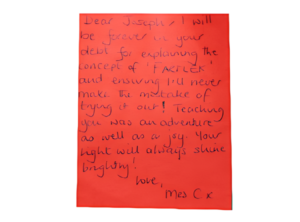 Dear Joseph, I will
be forever in your
debt for explaining the
concept of
and ensuring I'll never
make the mistake of
trying it out! Teaching
you was an adventure
as well as a joy. Your
light will always shine
brightly!
Love,
Mrs C x